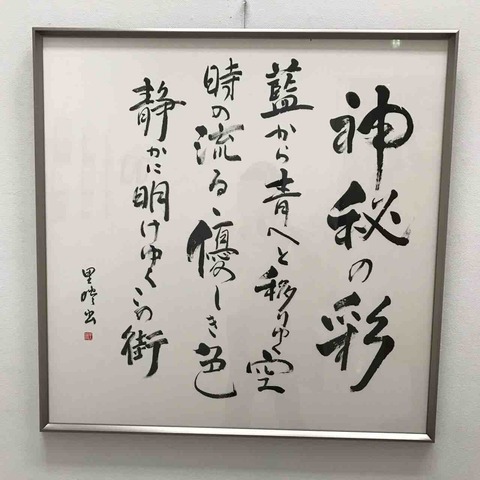 神秘の彩
藍から青へと移りゆく空
時の流る優しき色
静かに明けゆくこの街